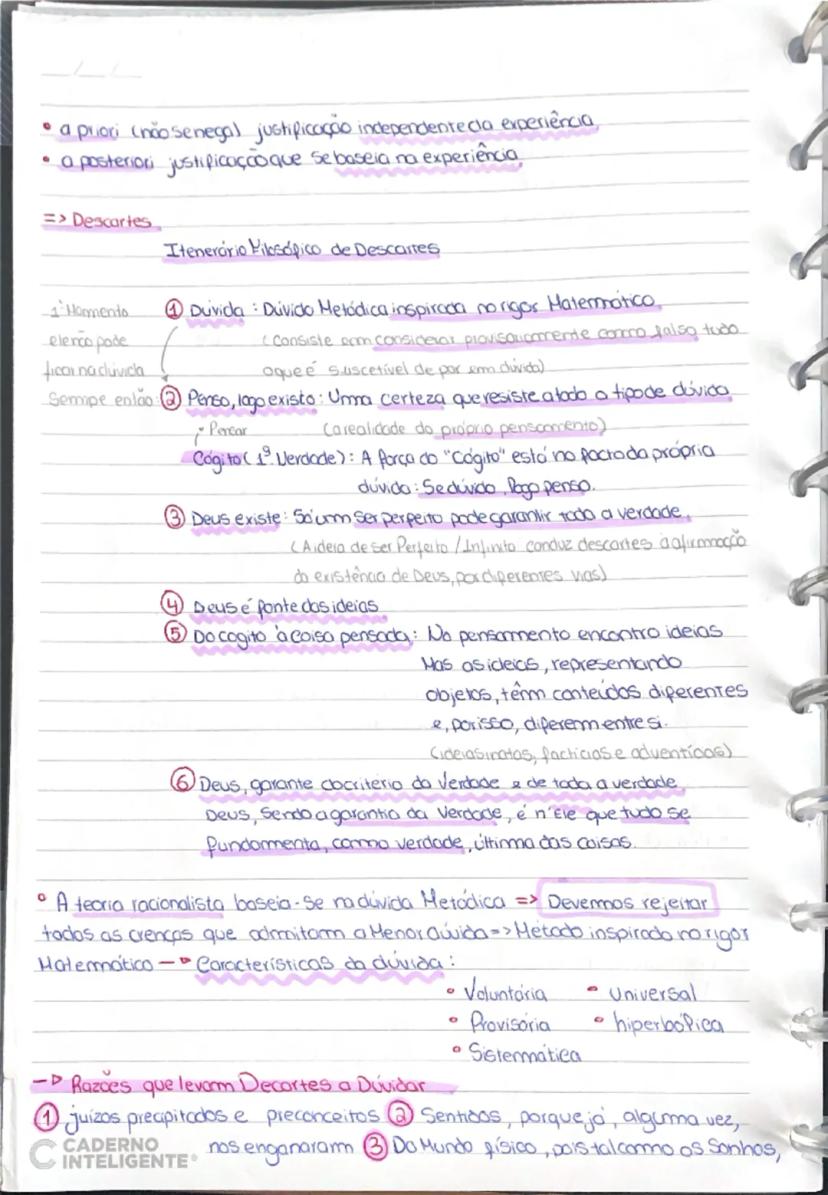 • a priori (não se nega) justificação independente da experiência
• a posteriori justificação que se baseia na experiência
=> Descartes
Itenerário Filosófico de Descartes
1º Momento ① Dúvida : Dúvida Metódica inspirada no rigor Matemático
ele não pode (Consiste em considerar provisoriamente como falso tudo
ficar na dúvida o que é suscetível de por em dúvida)
Sempre então: ② Penso, logo existo : Uma certeza que resiste a todo o tipo de dúvida
Pensar (a realidade do próprio pensamento)
Cógito (1ª Verdade) : A força do "Cógito" está no facto da própria
dúvida : Se dúvido, logo penso.
③ Deus existe : Só um ser perfeito pode garantir toda a verdade.
(A ideia de ser Perfeito / Infinito conduz descartes à afirmação
da existência de Deus, por diferentes vias)
④ Deus é fonte das ideias
⑤ Do cogito à coisa pensada : No pensamento encontro ideias
Mas as ideias, representando
objetos, têm conteúdos diferentes
e, por isso, diferem entre si.
(ideias inatas, factícias e adventícias)
⑥ Deus, garante do critério da Verdade e de toda a verdade
Deus, sendo a garantia da Verdade, é n'Ele que tudo se
fundamenta, como verdade, última das coisas.
° A teoria racionalista baseia-se na dúvida Metódica => Devemos rejeitar
todas as crenças que admitam a Menor dúvida => Método inspirado no rigor
Matemático —▷ Características da dúvida :
• Voluntária • universal
• Provisória • hiperbólica
• Sistemmática
—▷ Razões que levam Decartes a Dúvidar
① juízos precipitados e preconceitos ② Sentidos, porque já, alguma vez,
nos enganaram ③ Do Mundo físico, pois tal como os Sonhos,
CADERNO
INTELIGENTE®